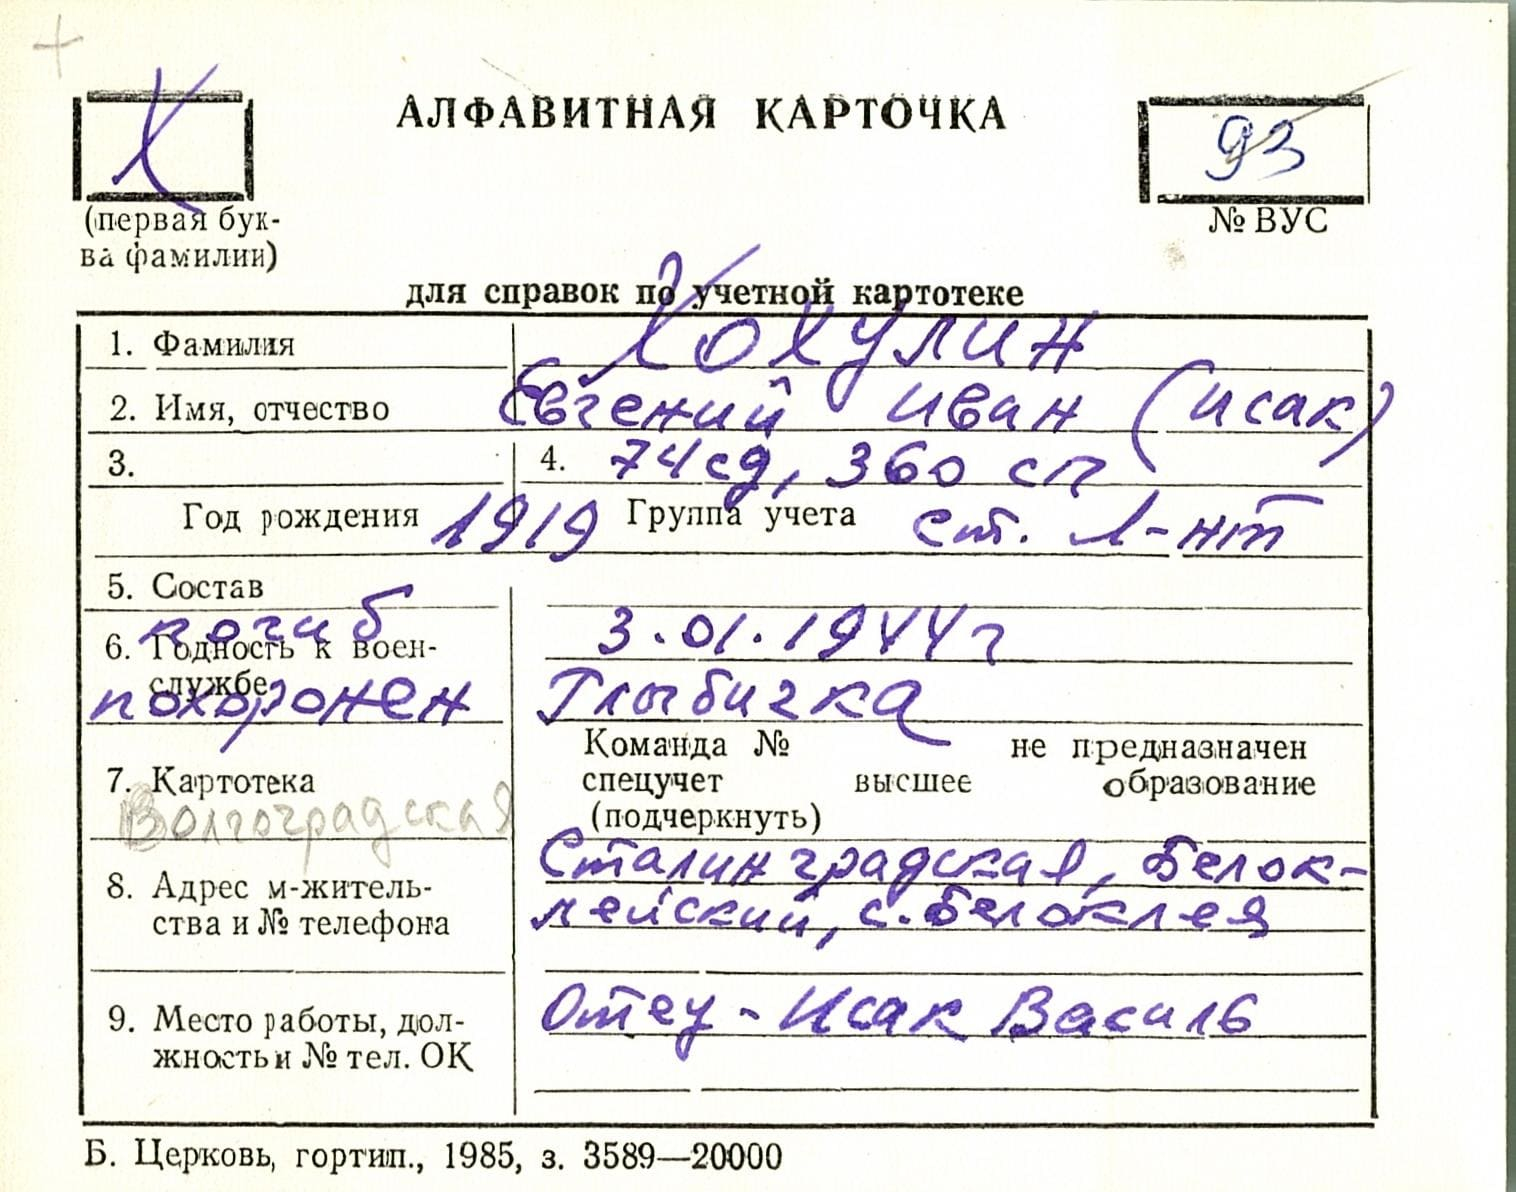 Х АЛФАВИТНАЯ КАРТОЧКА 93
(первая бук-
ва фамилии)
№ ВУС
для справок по учетной картотеке
1. Фамилия Хохулин
2. Имя, отчество Евгений Иван (Исак)
3. 4. 74 сд, 360 сп
Год рождения 1919 Группа учета ст. л-нт
5. Состав
погиб 3.01.1944 г
6. Годность к воен-
службе
похоронен Глыбичка
Команда № не предназначен
7. Картотека спецучет высшее образование
Волгоградская (подчеркнуть)
Сталинградская, Белок-
8. Адрес м-житель-
лейский, с. Белоклея
ства и № телефона
9. Место работы, дол- Отец - Исак Василь
жность и № тел. ОК
Б. Церковь, гортип., 1985, з. 3589—20000